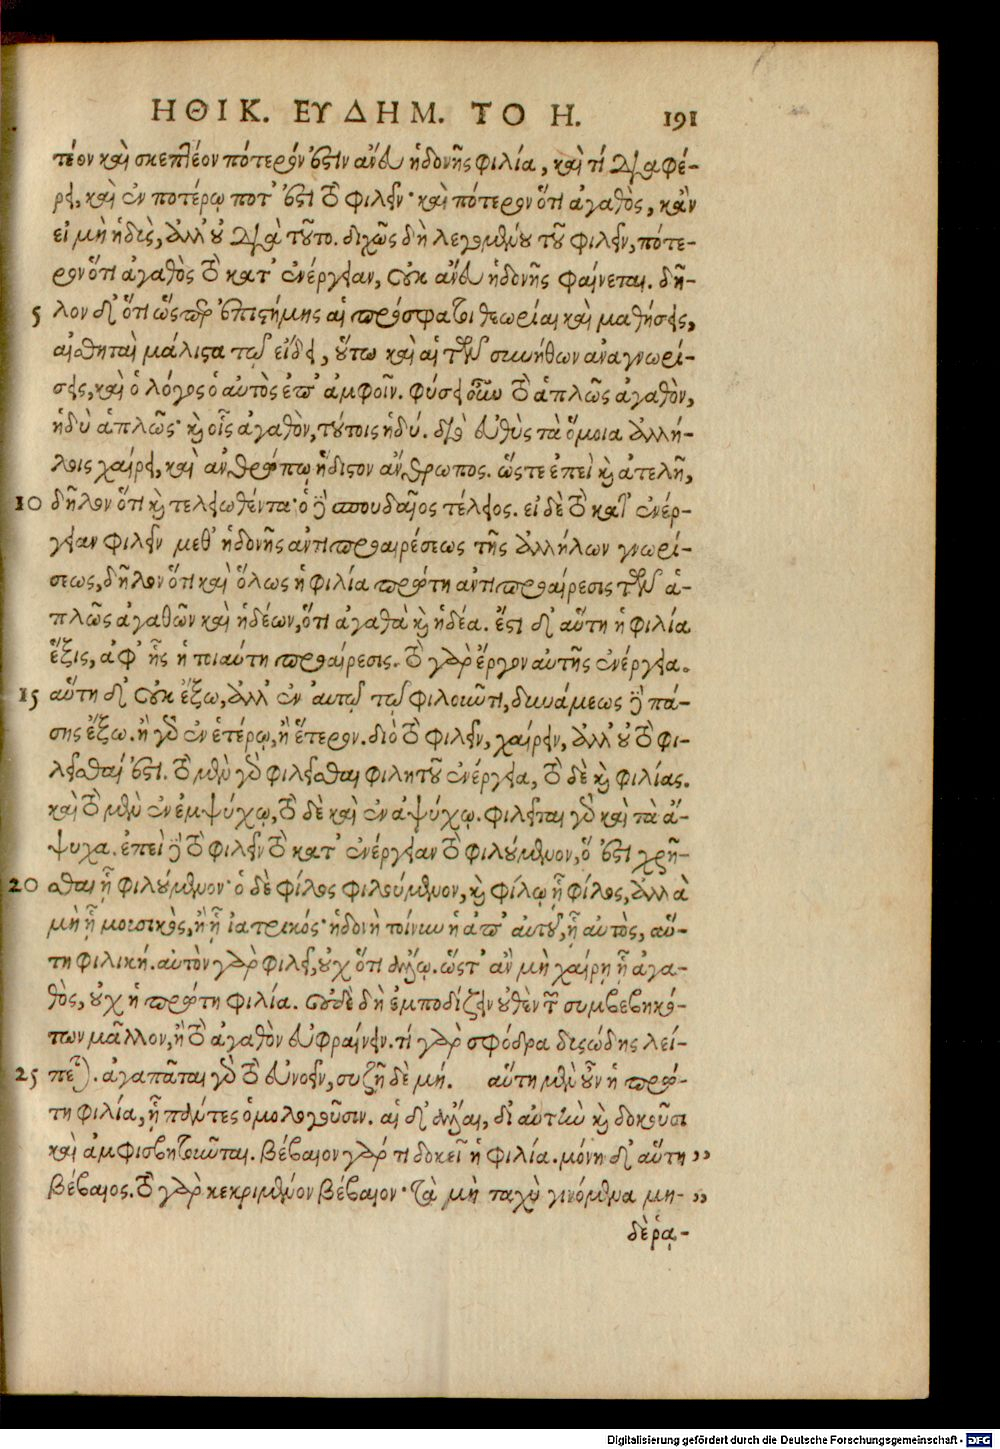 ΗΘΙΚ. ΕΥΔΗΜ. ΤΟ Η. 191
τέον καὶ σκεπτέον πότερόν ἐστιν ἄνευ ἡδονῆς φιλία, καὶ τί διαφέ-
ρει, καὶ ἐν ποτέρῳ ποτ' ἐστὶ τὸ φιλεῖν· καὶ πότερον ὅτι ἀγαθὸς, κἂν
εἰ μὴ ἡδὺς, ἀλλ' οὐ διὰ τοῦτο. διχῶς δὴ λεγομένου τοῦ φιλεῖν, πότε-
ρον ὅτι ἀγαθὸς τὸ κατ' ἐνέργειαν, οὐκ ἄνευ ἡδονῆς φαίνεται. δῆ-
5 λον δ' ὅτι ὥσπερ ἐπιστήμης αἱ πρόσφατοι θεωρίαι καὶ μαθήσεις,
αἰσθηταὶ μάλιστα τῷ εἴδει, οὕτω καὶ αἱ τῶν συνήθων ἀναγνωρί-
σεις, καὶ ὁ λόγος ὁ αὐτὸς ἐπ' ἀμφοῖν. φύσει οὖν τὸ ἁπλῶς ἀγαθὸν,
ἡδὺ ἁπλῶς· καὶ οἷς ἀγαθὸν, τούτοις ἡδύ. διὸ εὐθὺς τὰ ὅμοια ἀλλή-
λοις χαίρει, καὶ ἀνθρώπῳ ἥδιστον ἄνθρωπος. ὥστε ἐπεὶ καὶ ἀτελῆ,
10 δῆλον ὅτι καὶ τελειωθέντα· ὁ δὲ σπουδαῖος τέλειος. εἰ δὲ τὸ κατ' ἐνέρ-
γειαν φιλεῖν μεθ' ἡδονῆς ἀντιπροαιρέσεως τῆς ἀλλήλων γνωρί-
σεως, δῆλον ὅτι καὶ ὅλως ἡ φιλία πρώτη ἀντιπροαίρεσις τῶν ἁ-
πλῶς ἀγαθῶν καὶ ἡδέων, ὅτι ἀγαθὰ καὶ ἡδέα. ἔστι δ' αὕτη ἡ φιλία
ἕξις, ἀφ' ἧς ἡ τοιαύτη προαίρεσις. τὸ γὰρ ἔργον αὐτῆς ἐνέργεια.
15 αὕτη δ' οὐκ ἔξω, ἀλλ' ἐν αὐτῷ τῷ φιλοιῶτι, δυνάμεως δὲ πά-
σης ἔξω. ἢ γὰρ ἐν ἑτέρῳ, ἢ ἕτερον. διὸ τὸ φιλεῖν, χαίρειν, ἀλλ' οὐ τὸ φι-
λεῖσθαί ἐστι. τὸ μὲν γὰρ φιλεῖσθαι φιλητοῦ ἐνέργεια, τὸ δὲ καὶ φιλίας.
καὶ τὸ μὲν ἐν ἐμψύχῳ, τὸ δὲ καὶ ἐν ἀψύχῳ. φιλεῖται γὰρ καὶ τὰ ἄ-
ψυχα. ἐπεὶ δὲ τὸ φιλεῖν τὸ κατ' ἐνέργειαν τὸ φιλούμενον, ὅ ἐστι χρῆ-
20 σθαι ᾗ φιλούμενον· ὁ δὲ φίλος φιλούμενον, καὶ φίλῳ ᾗ φίλος, ἀλλὰ
μὴ ᾗ μουσικὸς, ἢ ᾗ ἰατρικός· ἡδονὴ τοίνυν ἡ ἀπ' αὐτοῦ, ᾗ αὐτὸς, αὕ-
τη φιλική. αὐτὸν γὰρ φιλεῖ, οὐχ ὅτι ἄλλῳ. ὥστ' ἂν μὴ χαίρῃ ᾗ ἀγα-
θὸς, οὐχ ἡ πρώτη φιλία. οὐδὲ δὴ ἐμποδίζειν οὐθὲν τῶν συμβεβηκό-
των μᾶλλον, ἢ τὸ ἀγαθὸν εὐφραίνειν. τί γὰρ σφόδρα δυσώδης λεί-
25 πεται. ἀγαπᾶται γὰρ τὸ εὐνοεῖν, συζῇ δὲ μή. αὕτη μὲν οὖν ἡ πρώ-
τη φιλία, ἣν πάντες ὁμολογοῦσιν. αἱ δ' ἄλλαι, δι' αὐτὴν καὶ δοκοῦσι
καὶ ἀμφισβητοῦνται. βέβαιον γάρ τι δοκεῖ ἡ φιλία. μόνη δ' αὕτη ,,
βέβαιος. τὸ γὰρ κεκριμένον βέβαιον· τὰ μὴ ταχὺ γινόμενα μη- ,,
δὲ ῥᾳ-
Digitalisierung gefördert durch die Deutsche Forschungsgemeinschaft - DFG